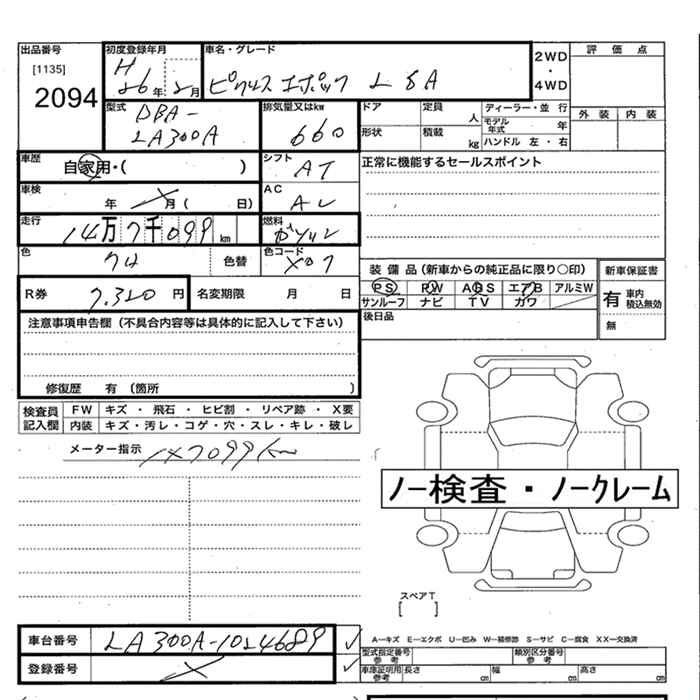 出品番号
[1135]
2094
初度登録年月
H 26年2月
車名・グレード
ピクシスエポック L SA
2WD
・
4WD
評価点
外装 内装
型式
DBA-
LA300A
排気量又はkw
660
ドア
定員
人
形状
積載
kg
ディーラー・並行
モデル年式 年
ハンドル 左・右
車歴
自家用・( )
シフト
AT
正常に機能するセールスポイント
車検
年 月 ( 日)
AC
走行
14万7千099km
燃料
ガソリン
色
色替
色コード
装備品(新車からの純正品に限り○印)
PS PW ABS エアB アルミW
サンルーフ ナビ TV カワ
新車保証書
有 車内積込無効
無
R券
7.320円
名変期限 月 日
後日品
注意事項申告欄(不具合内容等は具体的に記入して下さい)
修復歴 有 (箇所 )
検査員記入欄
FW キズ・飛石・ヒビ割・リペア跡・X要
内装 キズ・汚レ・コゲ・穴・スレ・キレ・破レ
メーター指示
147099km
ノー検査・ノークレーム
スペアT
[ ]
車台番号
LA300A-1024689
登録番号
A-キズ E-エクボ U-凹み W-補修跡 S-サビ C-腐食 XX-交換済
型式指定番号 参考
類別区分番号 参考
車庫証明用 参考
長さ cm 幅 cm 高さ cm